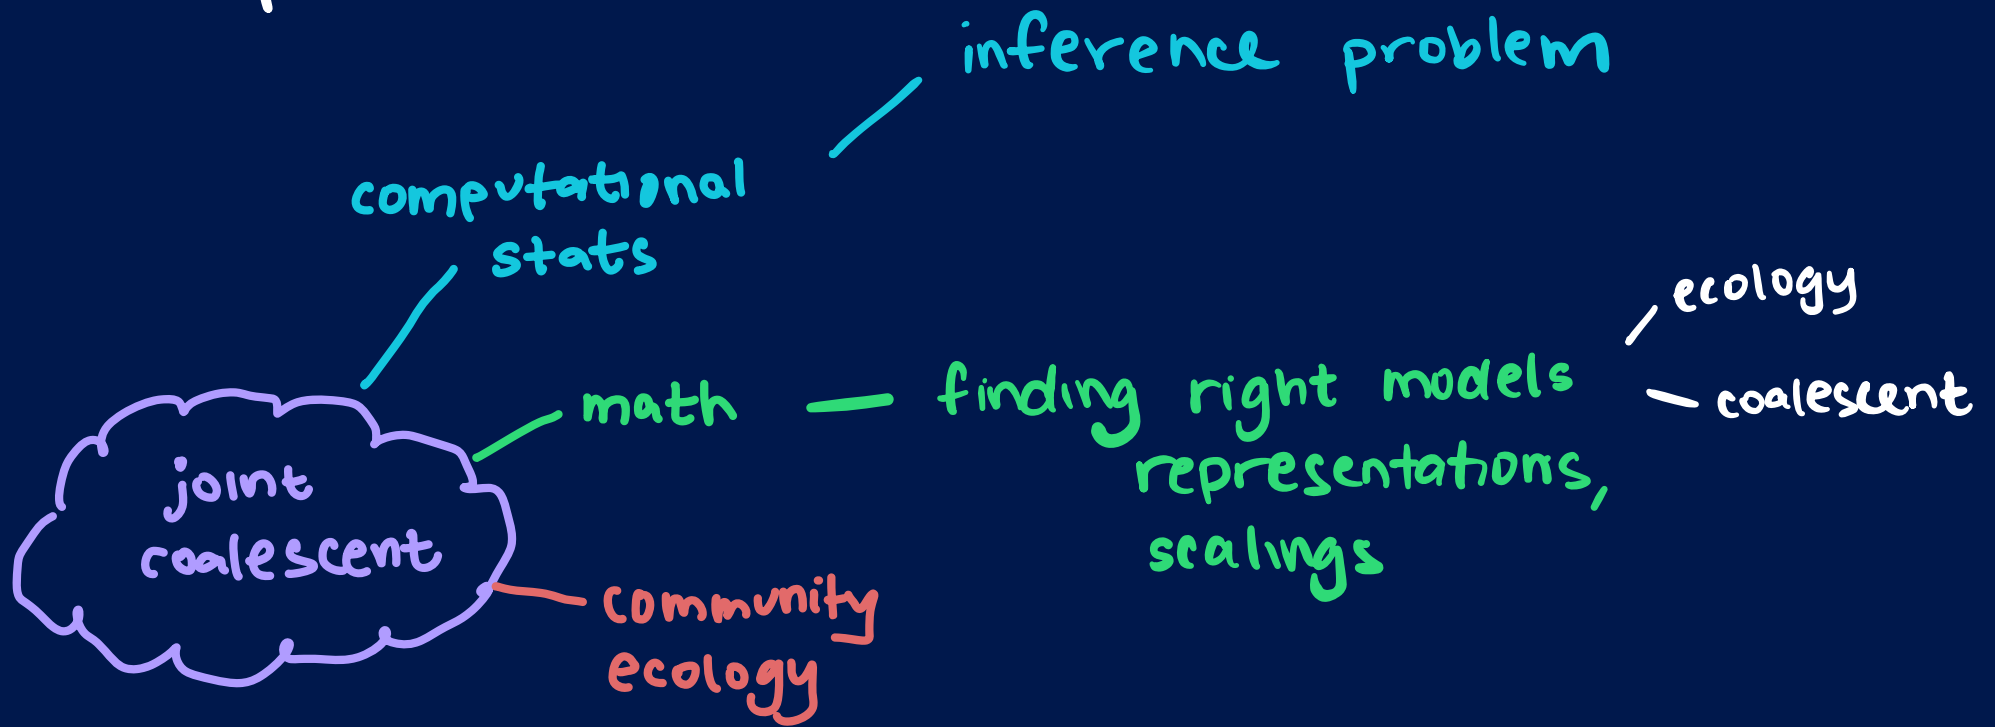 inference problem
computational
stats
ecology
math
finding right models
coalescent
representations,
scalings
joint
coalescent
community
ecology